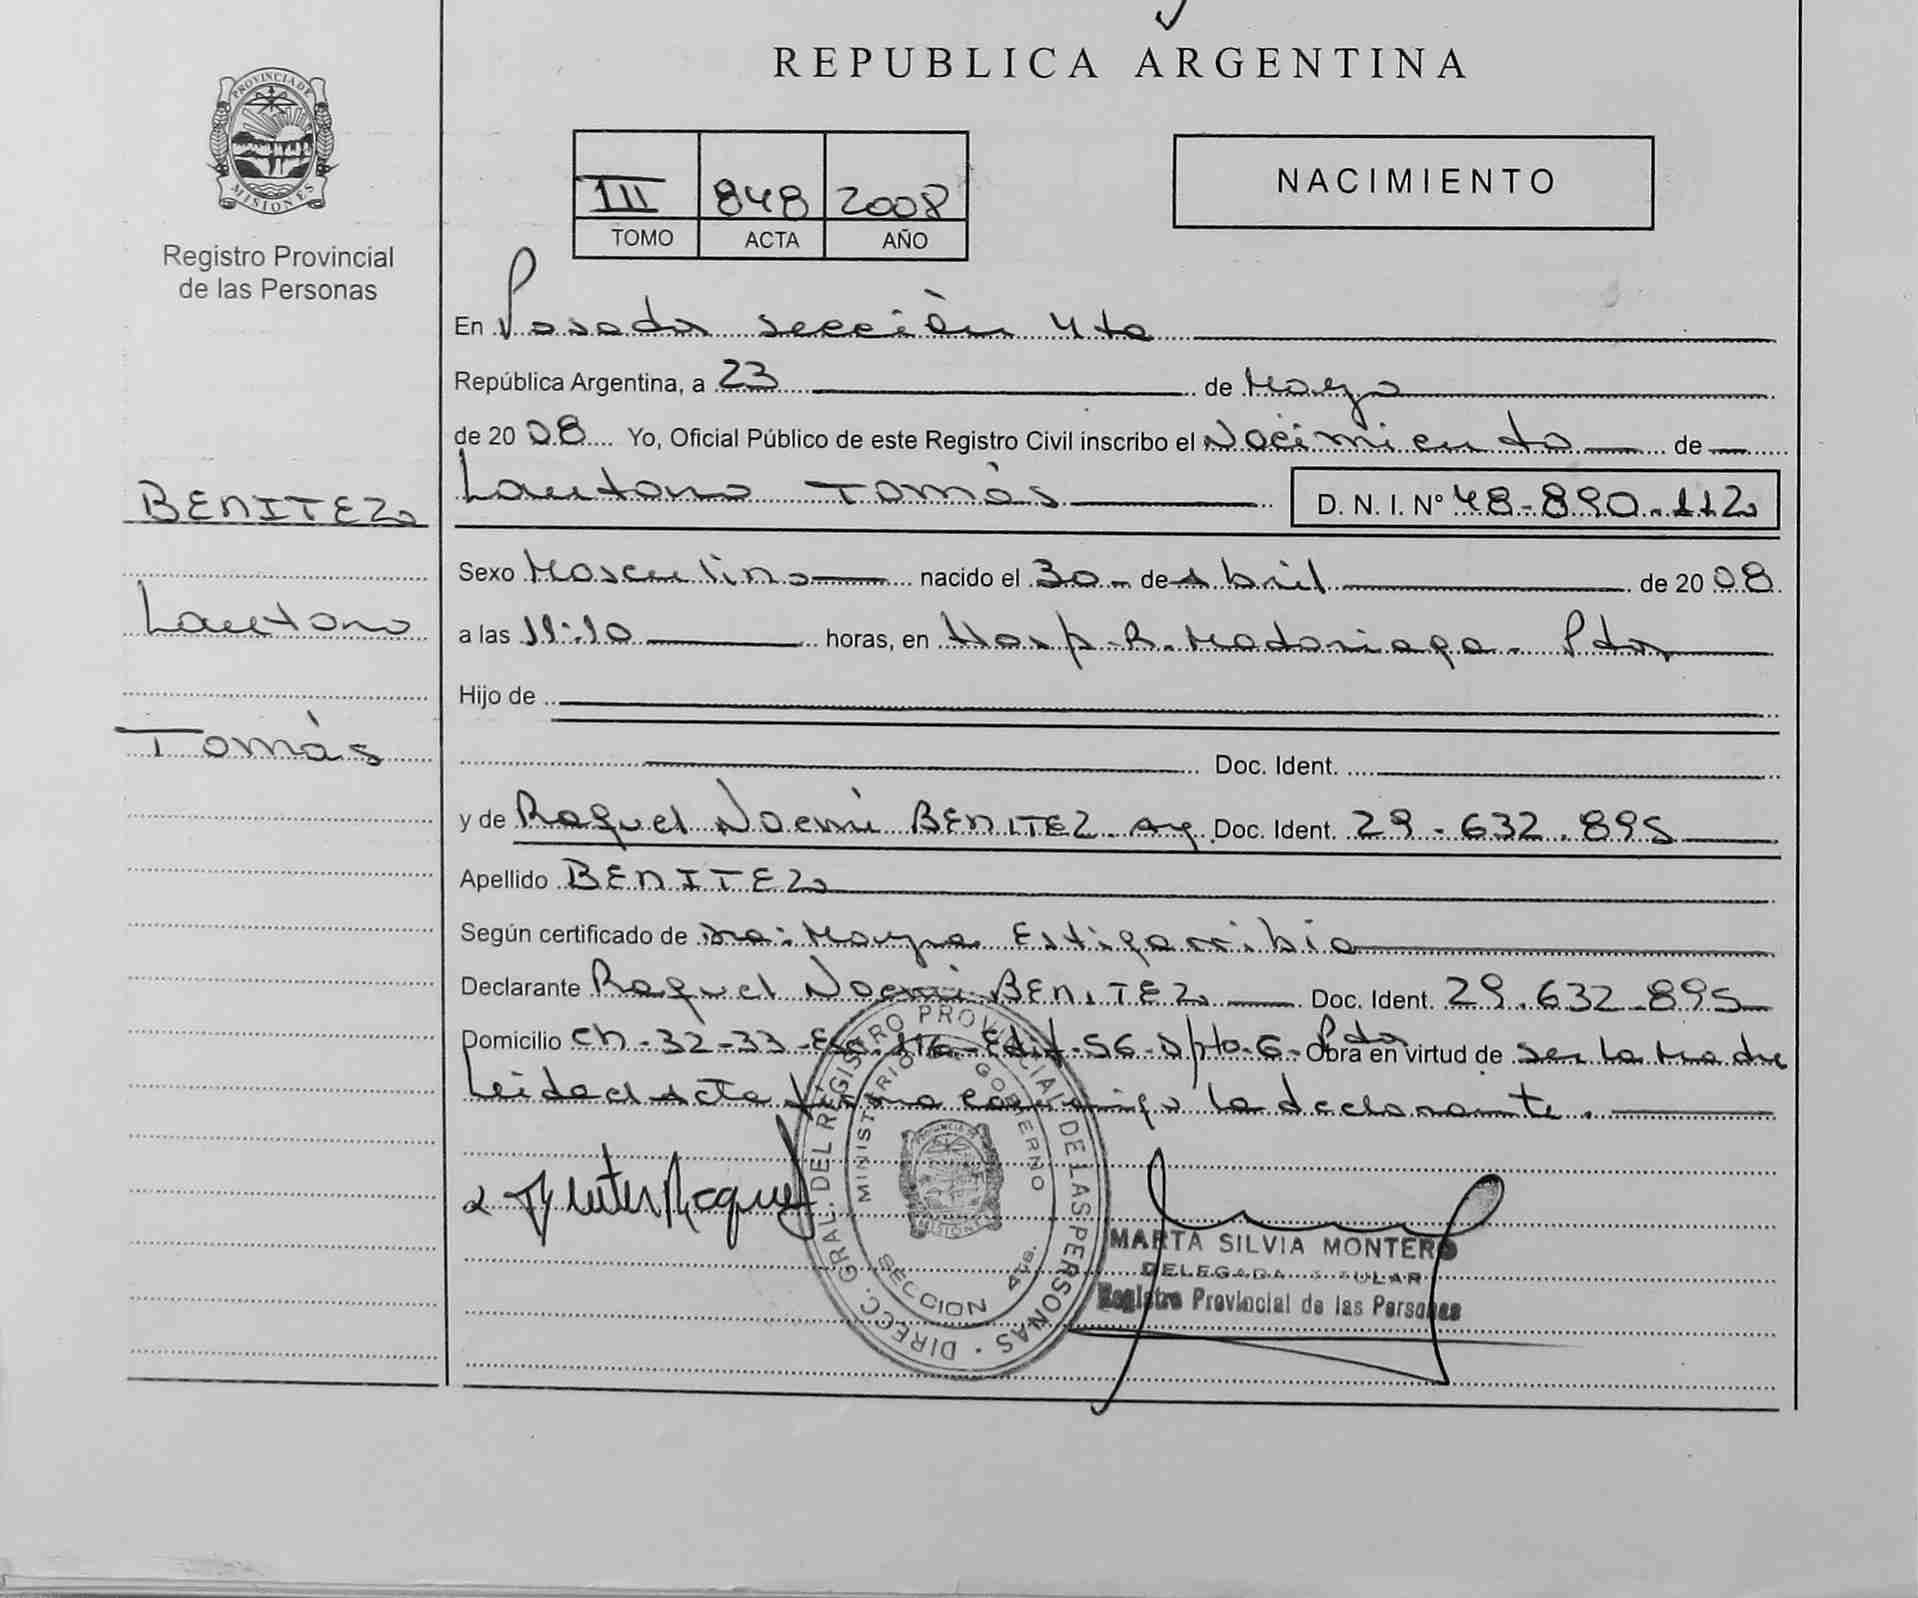 REPUBLICA ARGENTINA
PROVINCIA DE MISIONES
Registro Provincial
de las Personas
III 848 2008
TOMO ACTA AÑO
NACIMIENTO
En Posadas sección 4ta
República Argentina, a 23 de Mayo
de 2008 Yo, Oficial Público de este Registro Civil inscribo el Nacimiento de
Lautaro Tomás D. N. I. Nº 48-890.112
BENITEZ
Lautaro
Tomás
Sexo Masculino nacido el 30 de Abril de 2008
a las 11:10 horas, en Hosp. R. Madariaga. Pdas
Hijo de
Doc. Ident.
y de Raquel Noemi BENITEZ. Arg. Doc. Ident. 29.632.895
Apellido BENITEZ
Según certificado de Dra: Mayra Estigarribia
Declarante Raquel Noemi BENITEZ Doc. Ident. 29.632.895
Domicilio Ch-32-33-Esc. 116-Edif-56-Dpto-6-Pdas Obra en virtud de ser la Madre
Leida el Acta firma conmigo la declarante.
Raquel
DIRECC. GRAL. DEL REGISTRO PROVINCIAL DE LAS PERSONAS
MINISTERIO GOBIERNO
PROVINCIA DE MISIONES
SECCION 4ta.
MARTA SILVIA MONTERO
DELEGADA TITULAR
Registro Provincial de las Personas